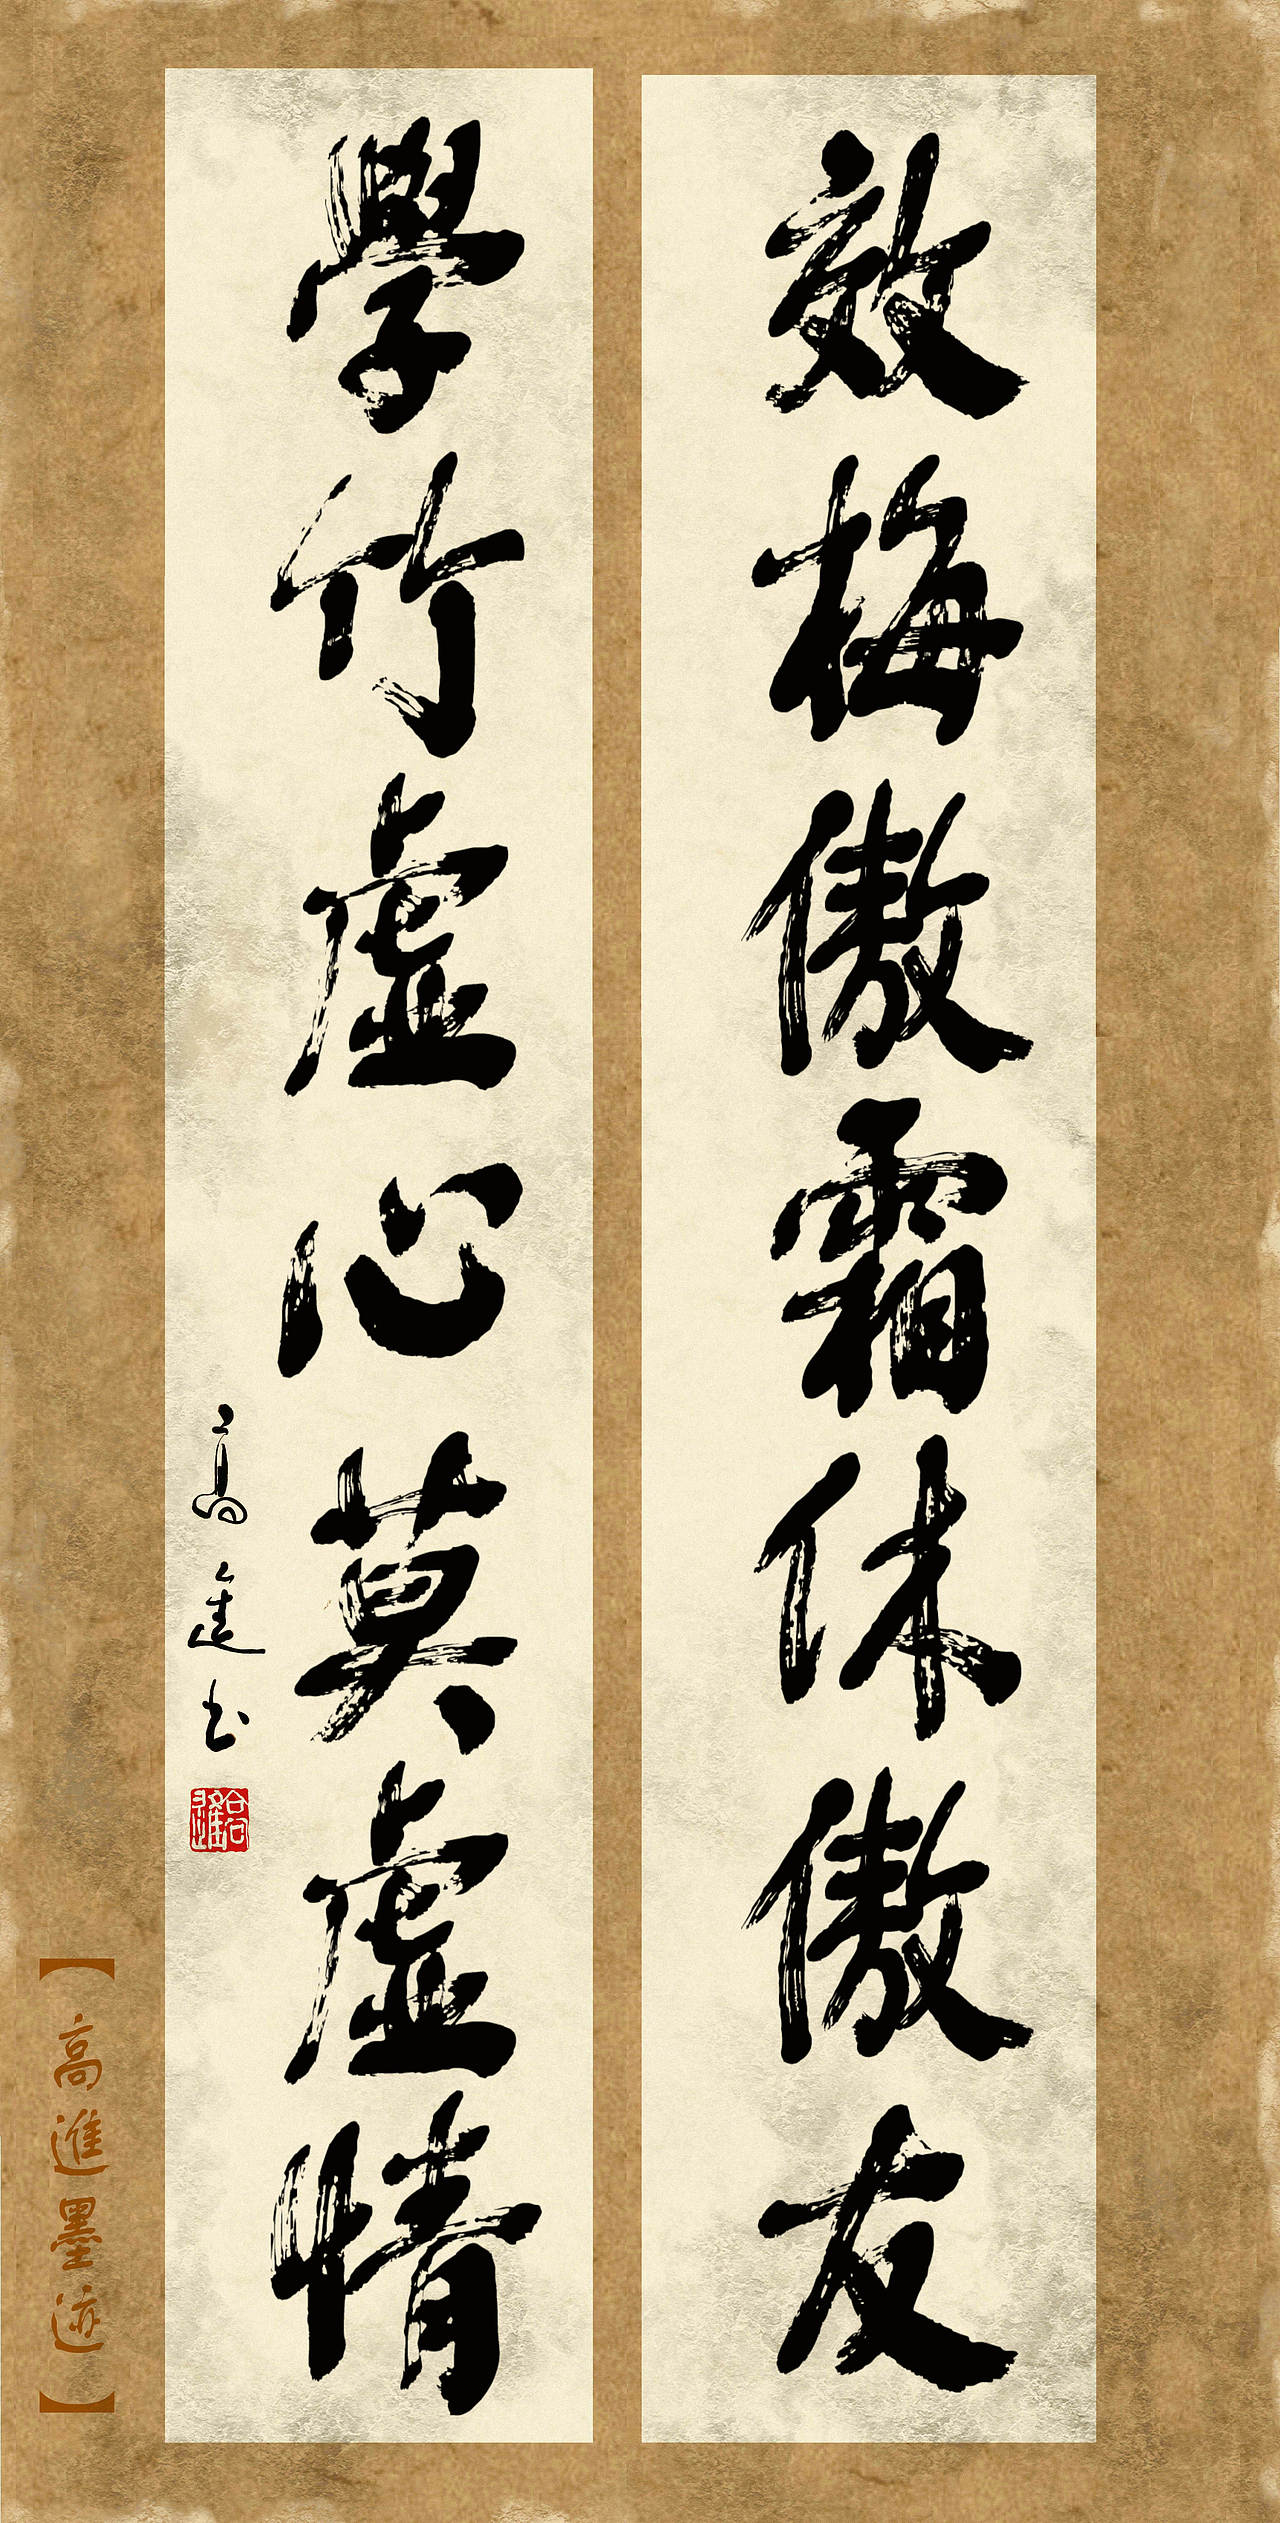 效梅傲霜休傲友
學竹虛心莫虛情
高進书
【高進墨迹】